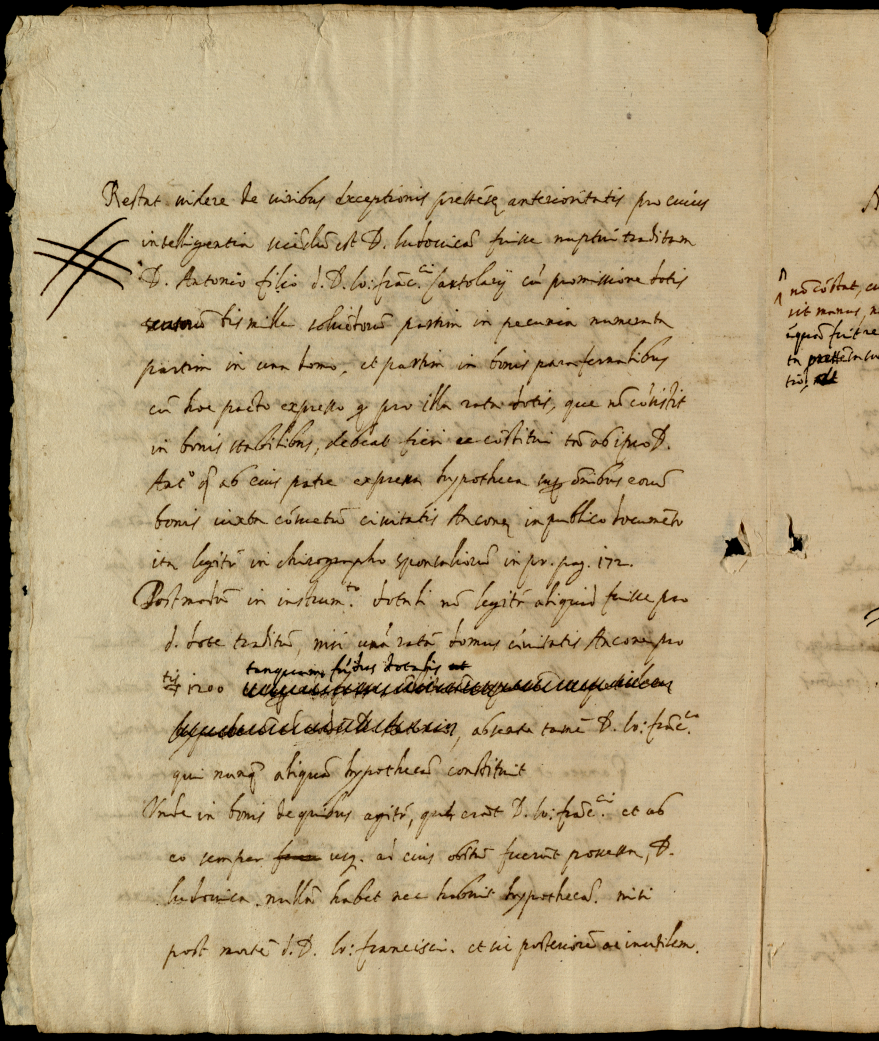 Restat videre de viribus exceptionis prettẽsę anterioritatis pro cuius
intelligentia sciẽdũ est D. ludovicã fuisse nuptui traditam
D. Antonio filio d. D. Io: frãc.ci Bartolacij cũ promissione dotis
scutorũ bis mille solvẽdorũ partim in pecunia numerata
partim in una domo, et partim in bonis paraferralibus
cũ hoc pacto expresso q pro illa rata dotis, que nõ cõsistit
in bonis stabilibus, debeat fieri ac cõstitui tã ab ipso D.
Ant.o q̃ ab eius patre expressa hypotheca sup õnibus eorũ
bonis iuxta cõsuetũ civitatis Anconę in publico documẽto
ita legitr̃ in chirographo sponsaliorũ in pr. pag. 172.
Postmodũ in instrum.to dotali nõ legitr̃ aliquid fuisse pro
d. dote traditũ, nisi unã ratã domus civitatis Anconę pro
tis 1200 tanquam fũdus dotalis et
, absente tamẽ D. Io: frãc.co
qui nunq̃ aliquã hypothecã constituit
Unde in bonis de quibus agitr̃, que erãt D. Io: frãc.ci et ab
eo semper usq. ad eius obitũ fuerũt possessa, D.
ludovica nullã habet nec habuit hypothecã. nisi
post mortẽ d. D. Io: francisci. et sic posteriorẽ ac inutilem.
nõ cõstat,
sit manus,